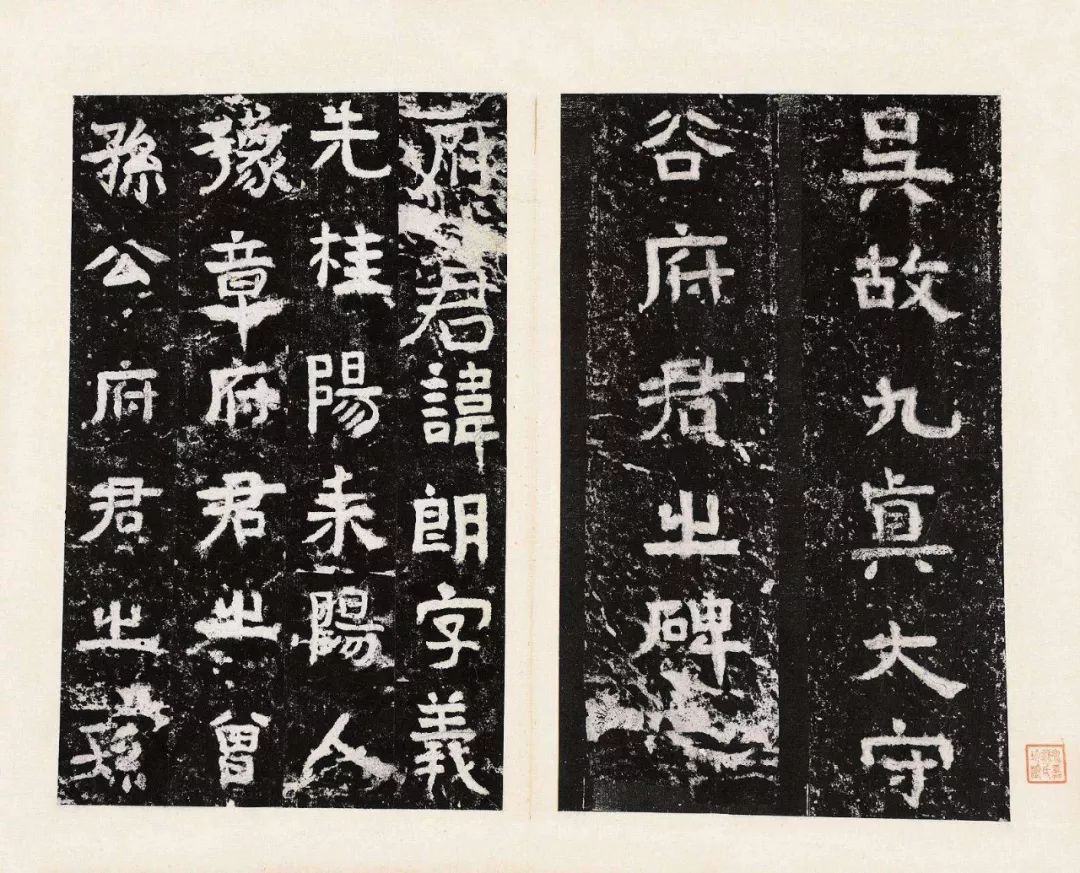 吳故九真太守
谷府君之碑
府君諱朗字義
先桂陽耒陽人
豫章府君之曾
孫公府君之孫